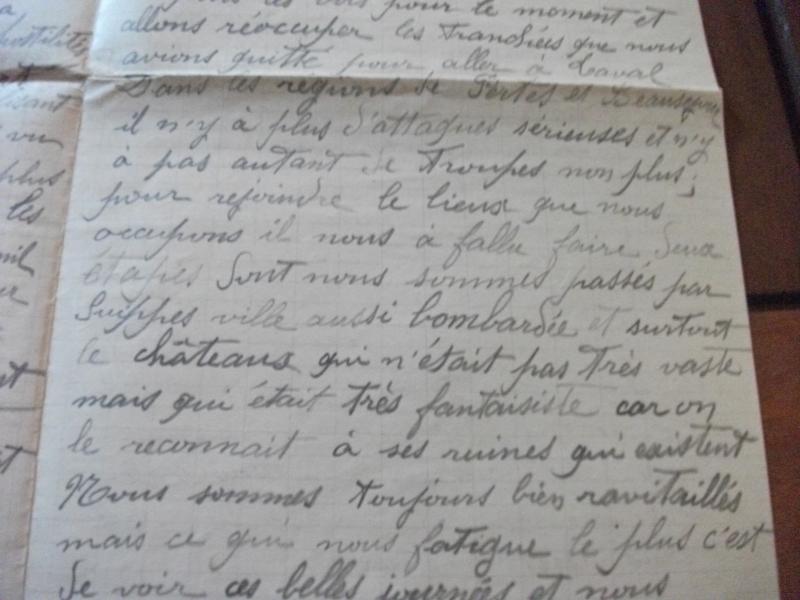 pour le moment et
allons réoccuper les tranchées que nous
avions quitté pour aller à Laval
Dans les régions de Pertes et Beauséjour
il n'y à plus d'attaques sérieuses et n'y
à pas autant de troupes non plus;
pour rejoindre le lieux que nous
occupons il nous à fallu faire deux
étapes dont nous sommes passés par
Suippes ville aussi bombardée et surtout
le châteaux qui n'était pas très vaste
mais qui était très fantaisiste car on
le reconnait à ses ruines qui existent
Nous sommes toujours bien ravitaillés
mais ce qui nous fatigue le plus c'est
de voir ces belles journées et nous
hostilités
vu
plus
les